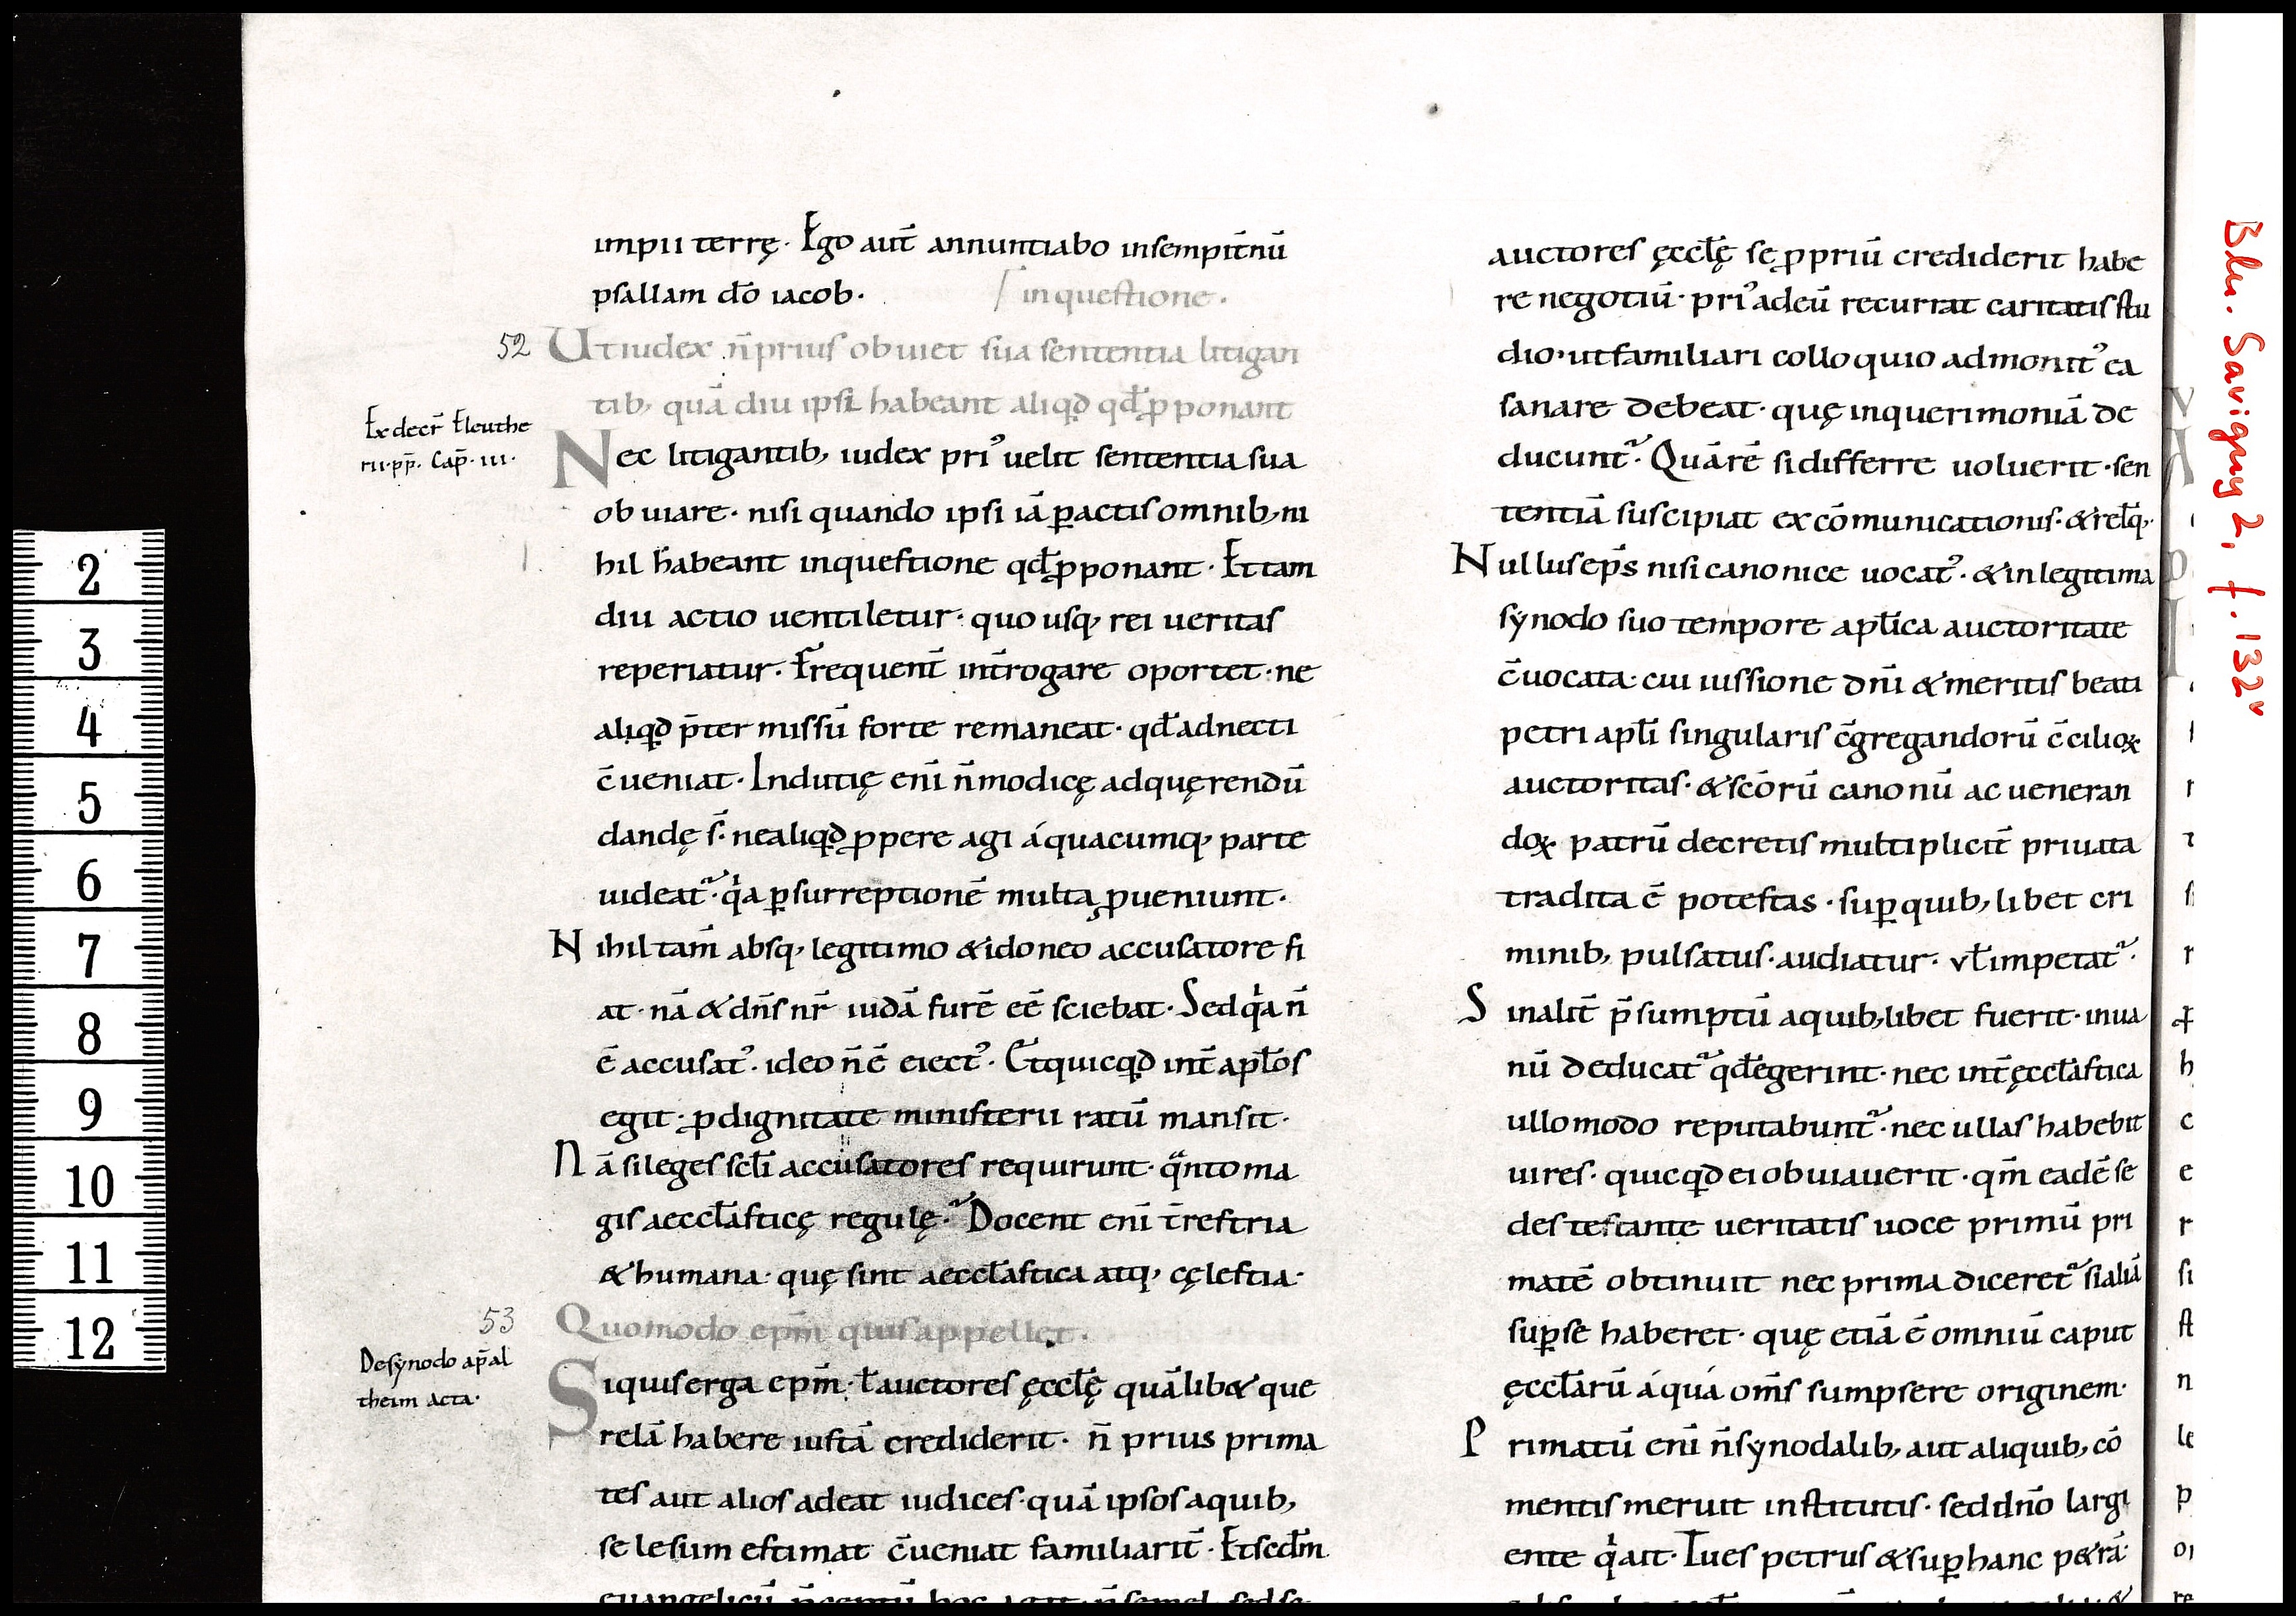 impii terrę. Ego aut̄ annuntiabo insempit̄nū
psallam dō iacob.
/ in questione.
52
Ut iudex n̄ prius obuiet sua sententia litigan
tib; quā diu ipsi habeant aliqđ qđ ꝓponant
Ex decr̄ Eleuthe
rii·pp̄. Cap̄. iii.
Nec litigantib; iudex pri᾽ uelit sententia sua
obuiare. nisi quando ipsi iā ꝑactis omnib; ni
hil habeant in questione qđ ꝓponant. Et tam
diu actio uentiletur. quo usq; rei ueritas
reperiatur. Frequent̄ int̄rogare oportet. ne
aliqđ p̄ter missū forte remaneat. qđ adnecti
c̄ueniat. Indutię eni̅ n̄ modicę ad quęrendū
dandę s̄. ne aliqđ ꝓpere agi á quacumq; parte
uideat᷑. qa ꝑ surreptionē multa ꝓueniunt.
Nihil tam̄ absq; legitimo & idoneo accusatore fi
at. nā & dn̄s nr̄ iudā furē eē sciebat. Sed qa n̄
ē accusat᾽. ideo n̄ ē eiect᾽. Et quicqđ int̄ apłos
egit. ꝓ dignitate ministerii ratū mansit.
Nā si leges scłi accusatores requirunt. qanto ma
gis aeccłasticę regulę. Docent eni̅ t̄restria
& humana. quę sint aeccłastica atq; cęlestia.
53
Quomodo epm̄ quis appellet.
De synodo ap̄ al
theim acta.
Si quis erga epm̄. ł auctores ęccłę quālib& que
relā habere iustā crediderit. n̄ prius prima
tes aut alios adeat iudices. quā ipsos a quib;
se lesum estimat c̄ueniat familiarit̄. Et scđm
euangelicū p̄ceptū hoc agat. n̄ semel. sed se
auctores ęccłę se ꝓpriū crediderit habe
re negotiū. pri᾽ ad eū recurrat caritatis stu
dio. ut familiari colloquio admonit᾽ ea
sanare debeat. quę in querimoniā de
ducunt᷑. Quārē si differre uoluerit. sen
tentiā suscipiat excōmunicationis. & relq;.
Nullus ep̄s nisi canonice uocat᾽. & in legitima
synodo suo tempore apłica auctoritate
c̄uocata. cui iussione dn̄i & meritis beati
petri apłi singularis c̄gregandorū c̄cilioꝝ
auctoritas. & scōrū canonū ac ueneran
doꝝ patrū decretis multiplicit̄ priuata
tradita ē potestas. suꝑ quib; libet cri
minib; pulsatus. audiatur. vł impetat᷑.
Sin alit̄ p̄sumptū a quib; libet fuerit. in ua
nū deducat᷑ qđ egerint. nec int̄ ęccłastica
ullo modo reputabunt᷑. nec ullas habebit
uires. quicqđ ei obuiauerit. qm̄ eadē se
des testante ueritatis uoce primū pri
matē obtinuit nec prima diceret᷑ si aliā
suꝑ se haberet. quę etiā ē omniū caput
ęccłarū á quá om̄s sumpsere originem.
Primatū eni̅ n̄ synodalib; aut aliquib; cō
mentis meruit institutis. sed dn̄o largi
ente q ait. Tu es petrus & suꝑ hanc p&rā
Blu. Savigny 2, f. 132v
2
3
4
5
6
7
8
9
10
11
12